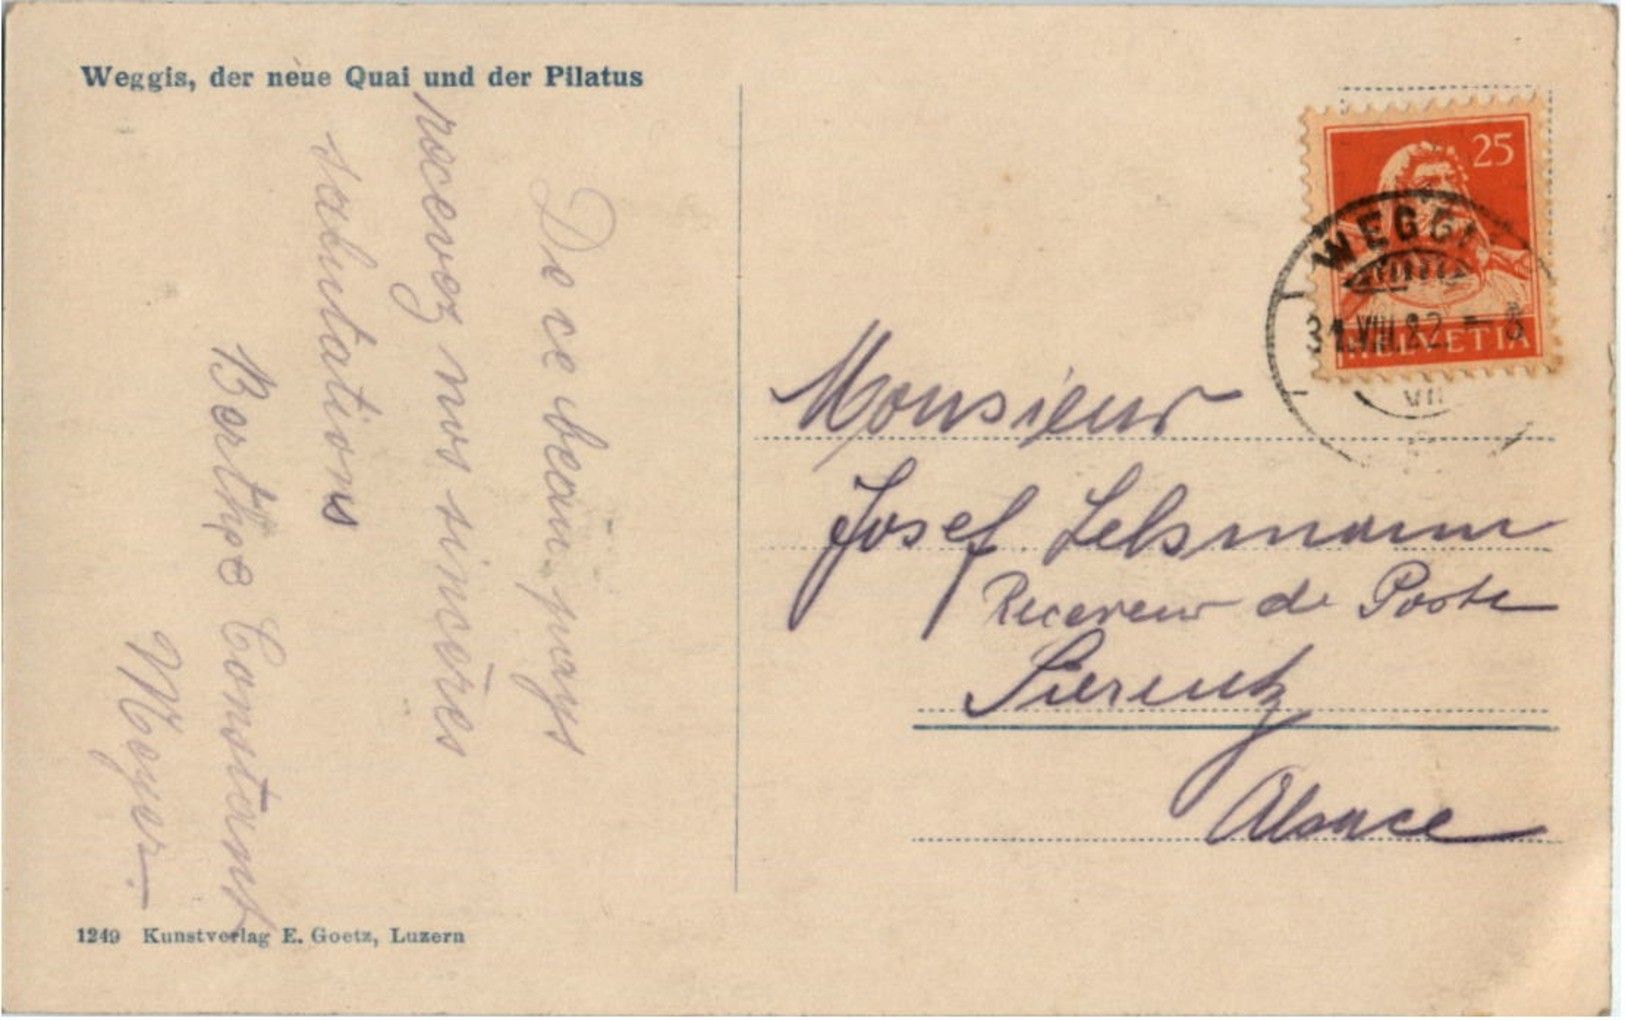 Weggis, der neue Quai und der Pilatus
De ce beau pays
recevez nos sincères
salutations
Berthe Constant
Meyer.
1249 Kunstverlag E. Goetz, Luzern
25
HELVETIA
WEGGI
31.VIII.22. – 8
VII
Monsieur
Josef Lelsmann
Receveur de Poste
Sierentz
Alsace